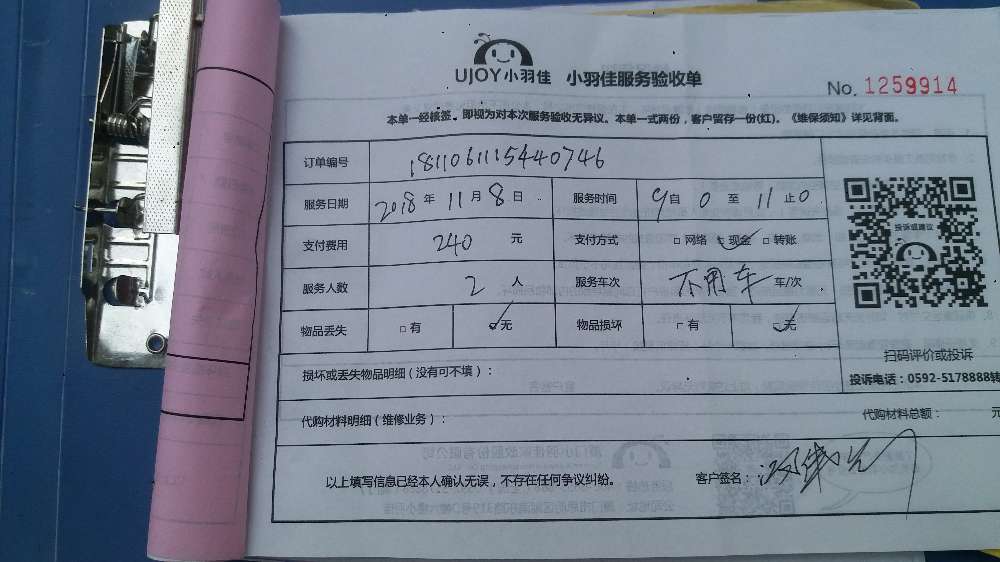 UJOY小羽佳 小羽佳服务验收单
No. 1259914
本单一经核签，即视为对本次服务验收无异议。本单一式两份，客户留存一份(红)。《维保须知》详见背面。
订单编号 1811061115440746
服务日期 2018年11月8日 服务时间 9自0至11止0
支付费用 240元 支付方式 □网络 ☑现金 □转账
服务人数 2人 服务车次 不用车 车/次
物品丢失 □有 ☑无 物品损坏 □有 ☑无
投诉或建议
扫码评价或投诉
投诉电话：0592-5178888转
损坏或丢失物品明细（没有可不填）：
代购材料明细（维修业务）： 代购材料总额： 元
以上填写信息已经本人确认无误，不存在任何争议纠纷。 客户签名：